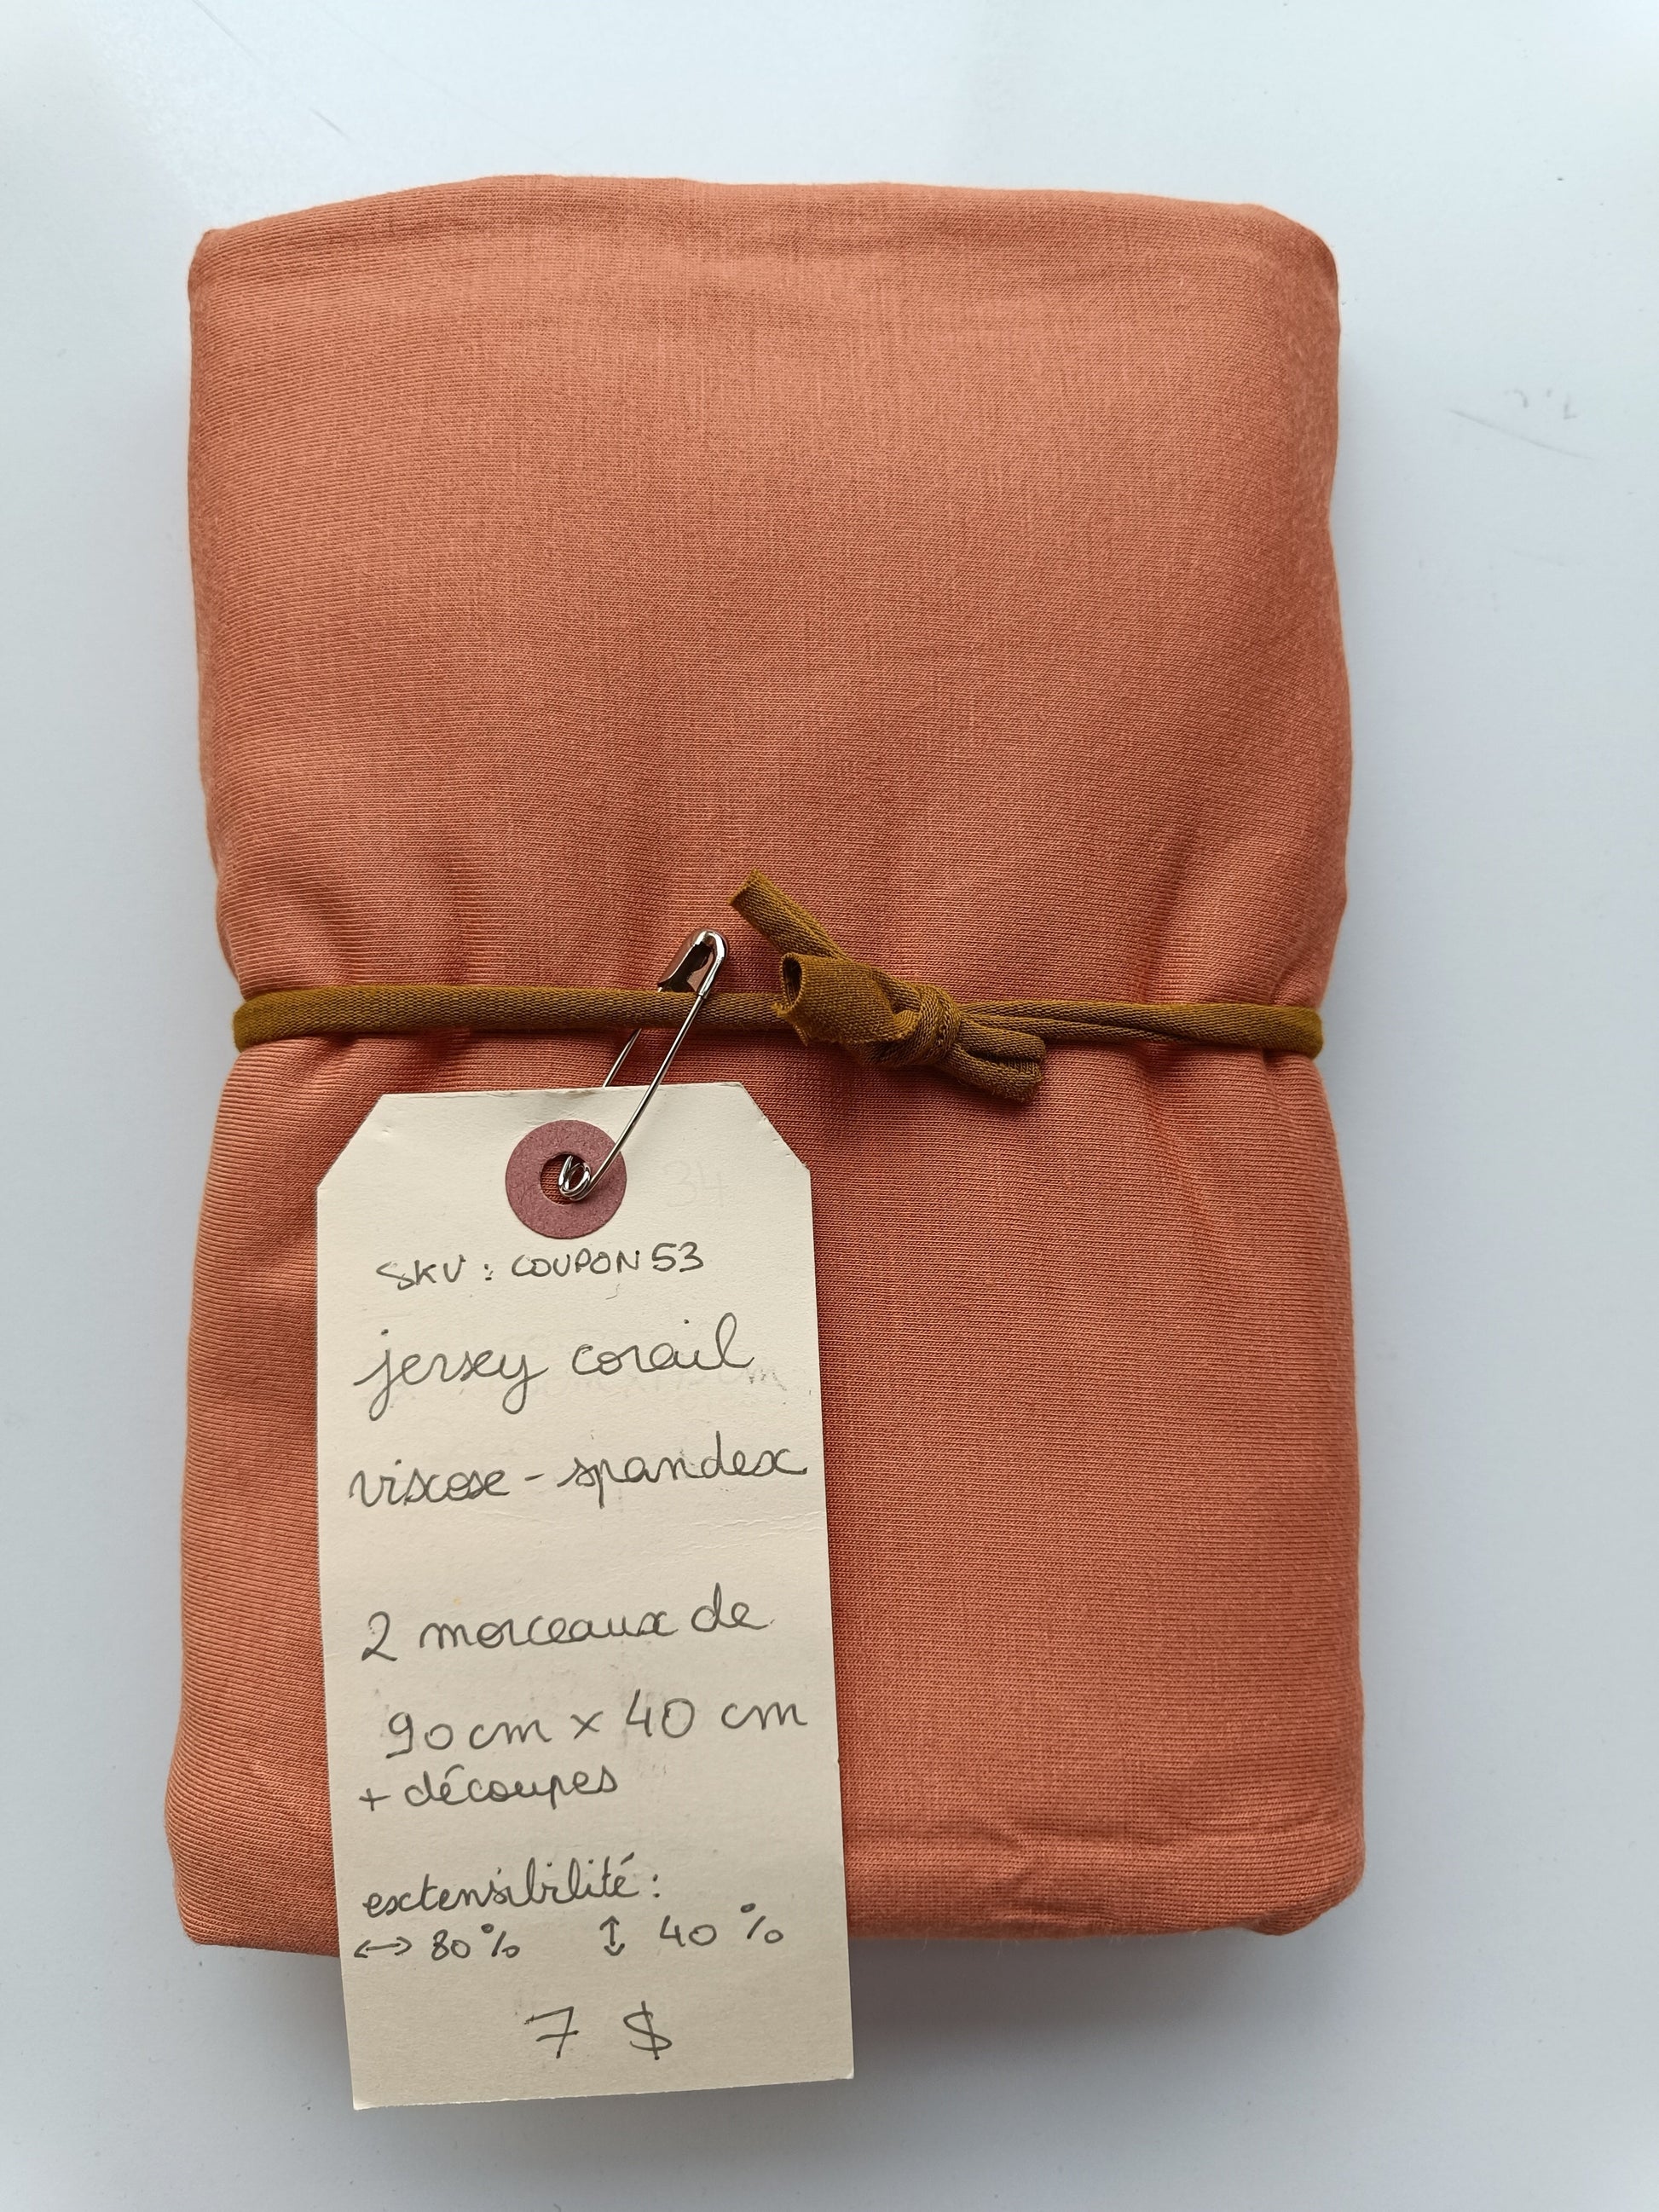 34
SKU : COUPON53
jersey corail
viscose - spandex
2 morceaux de
90 cm x 40 cm
+ découpes
extensibilité :
↔ 80% ↕ 40 %
7 $